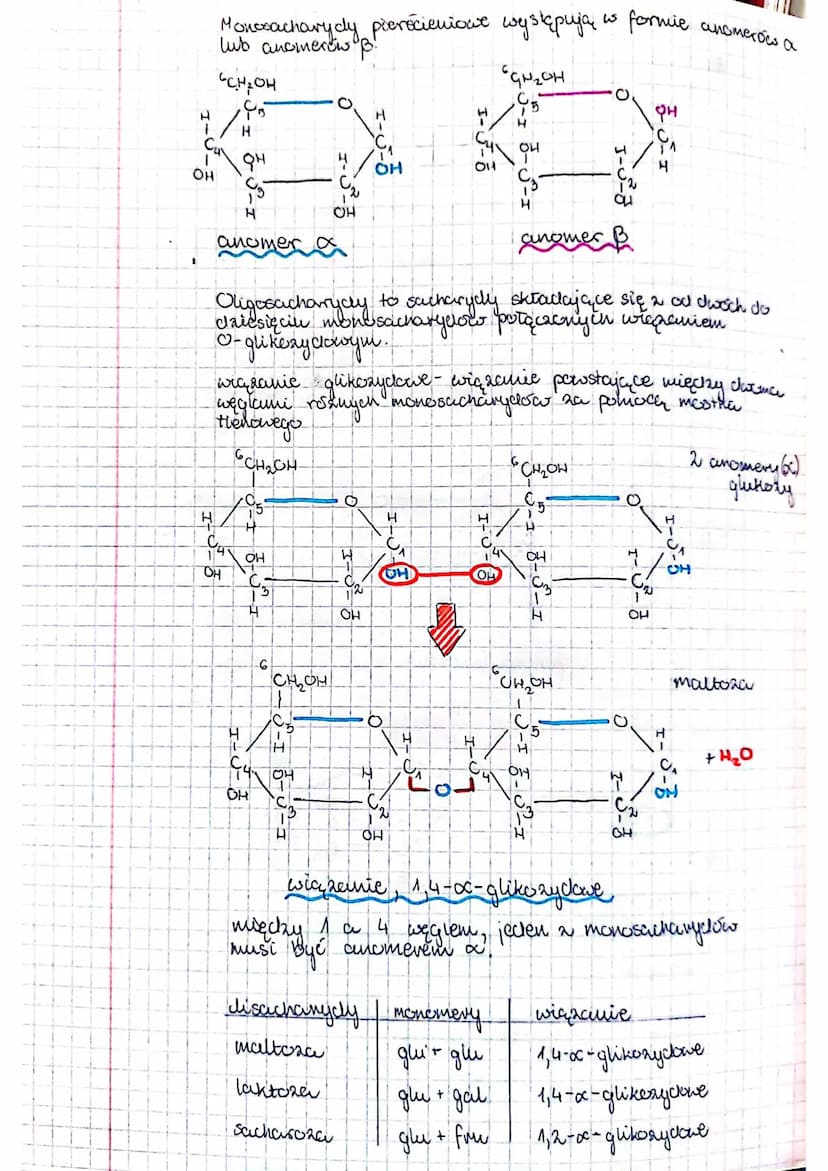 Monosacharydy pierścieniowe występują w formie anomerów α
lub anomerów β.
6CH2OH
C5 O
H H H
C4 OH H C1
OH C3 C2 OH
H OH
anomer α
6CH2OH
C5 O OH
H H
C4 OH H C1
OH C3 C2 H
H OH
anomer β
Oligosacharydy to sacharydy składające się z od dwóch do
dziesięciu monosacharydów połączonych wiązaniem
O-glikozydowym.
wiązanie glikozydowe - wiązanie powstające między dwoma
węglami różnych monosacharydów za pomocą mostka
tlenowego
2 anomery (α)
glukozy
6CH2OH
C5 O
H H H
C4 OH H C1
OH C3 C2 OH
H OH
6CH2OH
C5 O
H H H
C4 OH H C1
OH C3 C2 OH
H OH
maltoza
6
CH2OH
C5 O
H H H
C4 OH H C1
OH C3 C2
H OH
O
6CH2OH
C5 O
H H H
C4 OH H C1
C3 C2 OH
H OH
+ H2O
wiązanie 1,4-α-glikozydowe
między 1 a 4 węglem, jeden z monosacharydów
musi być anomerem α.
disacharydy monomery wiązanie
maltoza glu + glu 1,4-α-glikozydowe
laktoza glu + gal 1,4-α-glikozydowe
sacharoza glu + fru 1,2-α-glikozydowe